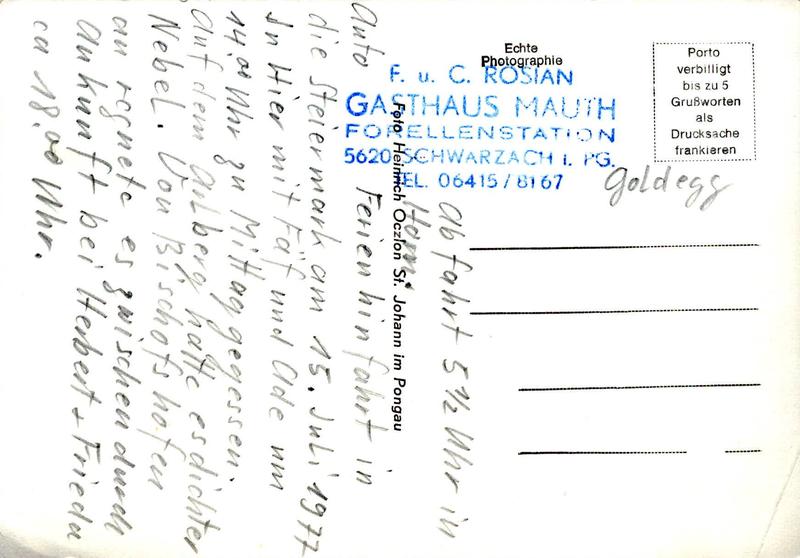 Echte
Photographie
Porto
verbilligt
bis zu 5
Grußworten
als
Drucksache
frankieren
F. u. C. ROSIAN
GASTHAUS MAUTH
FORELLENSTATION
5620 SCHWARZACH i. PG.
TEL. 06415/8167
Goldegg
Foto Heinrich Oczlon St. Johann im Pongau
Abfahrt 5 1/2 Uhr in
Horn.
Auto Ferienhinfahrt in
die Steiermark am 15. Juli 1977
In Hier mit und Ade um
14.00 Uhr zu Mittag gegessen.
Auf dem Arlberg hatte es dichter
Nebel. Von Bischofshofen
an regnete es zwischendurch
Ankunft bei Herbert + Frieda
ca 18.00 Uhr.